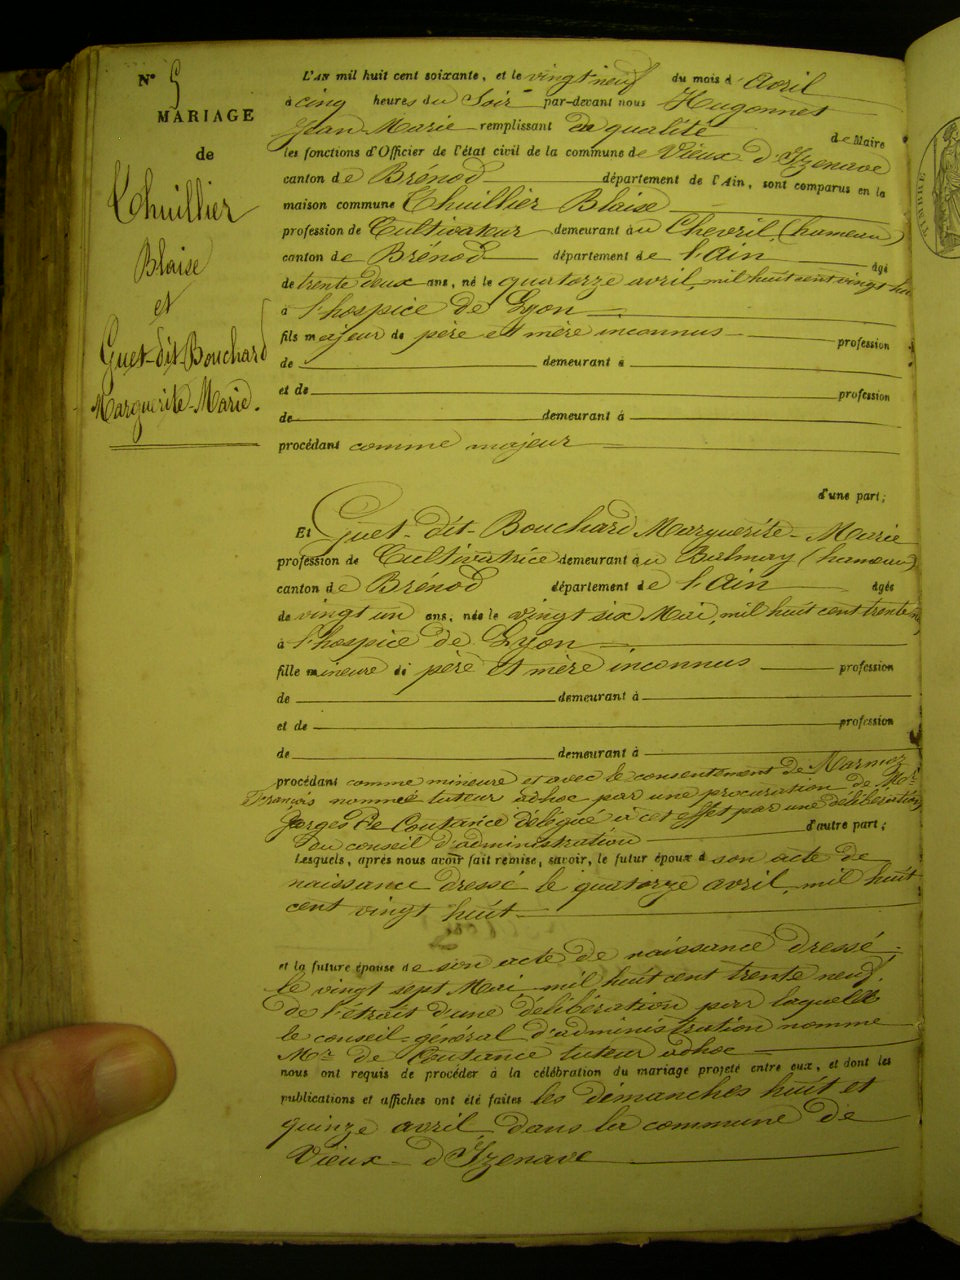 N° 5
MARIAGE
de
Thuillier
Blaise
et
Guet-dit-Bouchard
Marguerite-Marie.
L'AN mil huit cent soixante, et le vingt neuf du mois d'avril
à cinq heures du Soir par-devant nous Hugonnet
Jean Marie remplissant en qualité de Maire
les fonctions d'Officier de l'état civil de la commune de Vieux d'Izenave
canton de Brénod département de l'Ain, sont comparus en la
maison commune Thuillier Blaise
profession de Cultivateur demeurant au Chevril (hameau)
canton de Brénod département de l'Ain âgé
de trente deux ans, né le quatorze avril, mil huit cent vingt hui
à l'hospice de Lyon
fils majeur de père et mère inconnus profession
de demeurant à
et de profession
de demeurant à
procédant comme majeur
d'une part;
Et Guet-dit-Bouchard Marguerite-Marie
profession de Cultivatrice demeurant au Balmay (hameau)
canton de Brénod département de l'Ain âgés
de vingt un ans, née le vingt six Mai, mil huit cent trente
à l'hospice de Lyon
fille mineure de père et mère inconnus profession
de demeurant à
et de profession
de demeurant à
procédant comme mineure et avec le consentement de Marmoz
François nommée tuteur adhoc par une procuration de Mor
Georges De Coutance délégué à cet effet par une délibération
du conseil d'administration d'autre part;
Lesquels, après nous avoir fait remise, savoir, le futur époux d son acte de
naissance dressé le quatorze avril, mil huit
cent vingt huit
et la future épouse de son acte de naissance dressé
le vingt sept Mai mil huit cent trente neuf.
De l'étrait d'une délibération par laquelle
le conseil-général d'administration nomme
Mr de Coutance tuteur adhoc
nous ont requis de procéder à la célébration du mariage projeté entre eux, et dont les
publications et affiches ont été faites les dimanches huit et
quinze avril dans la commune de
Vieux-d'Izenave
TIMBRE